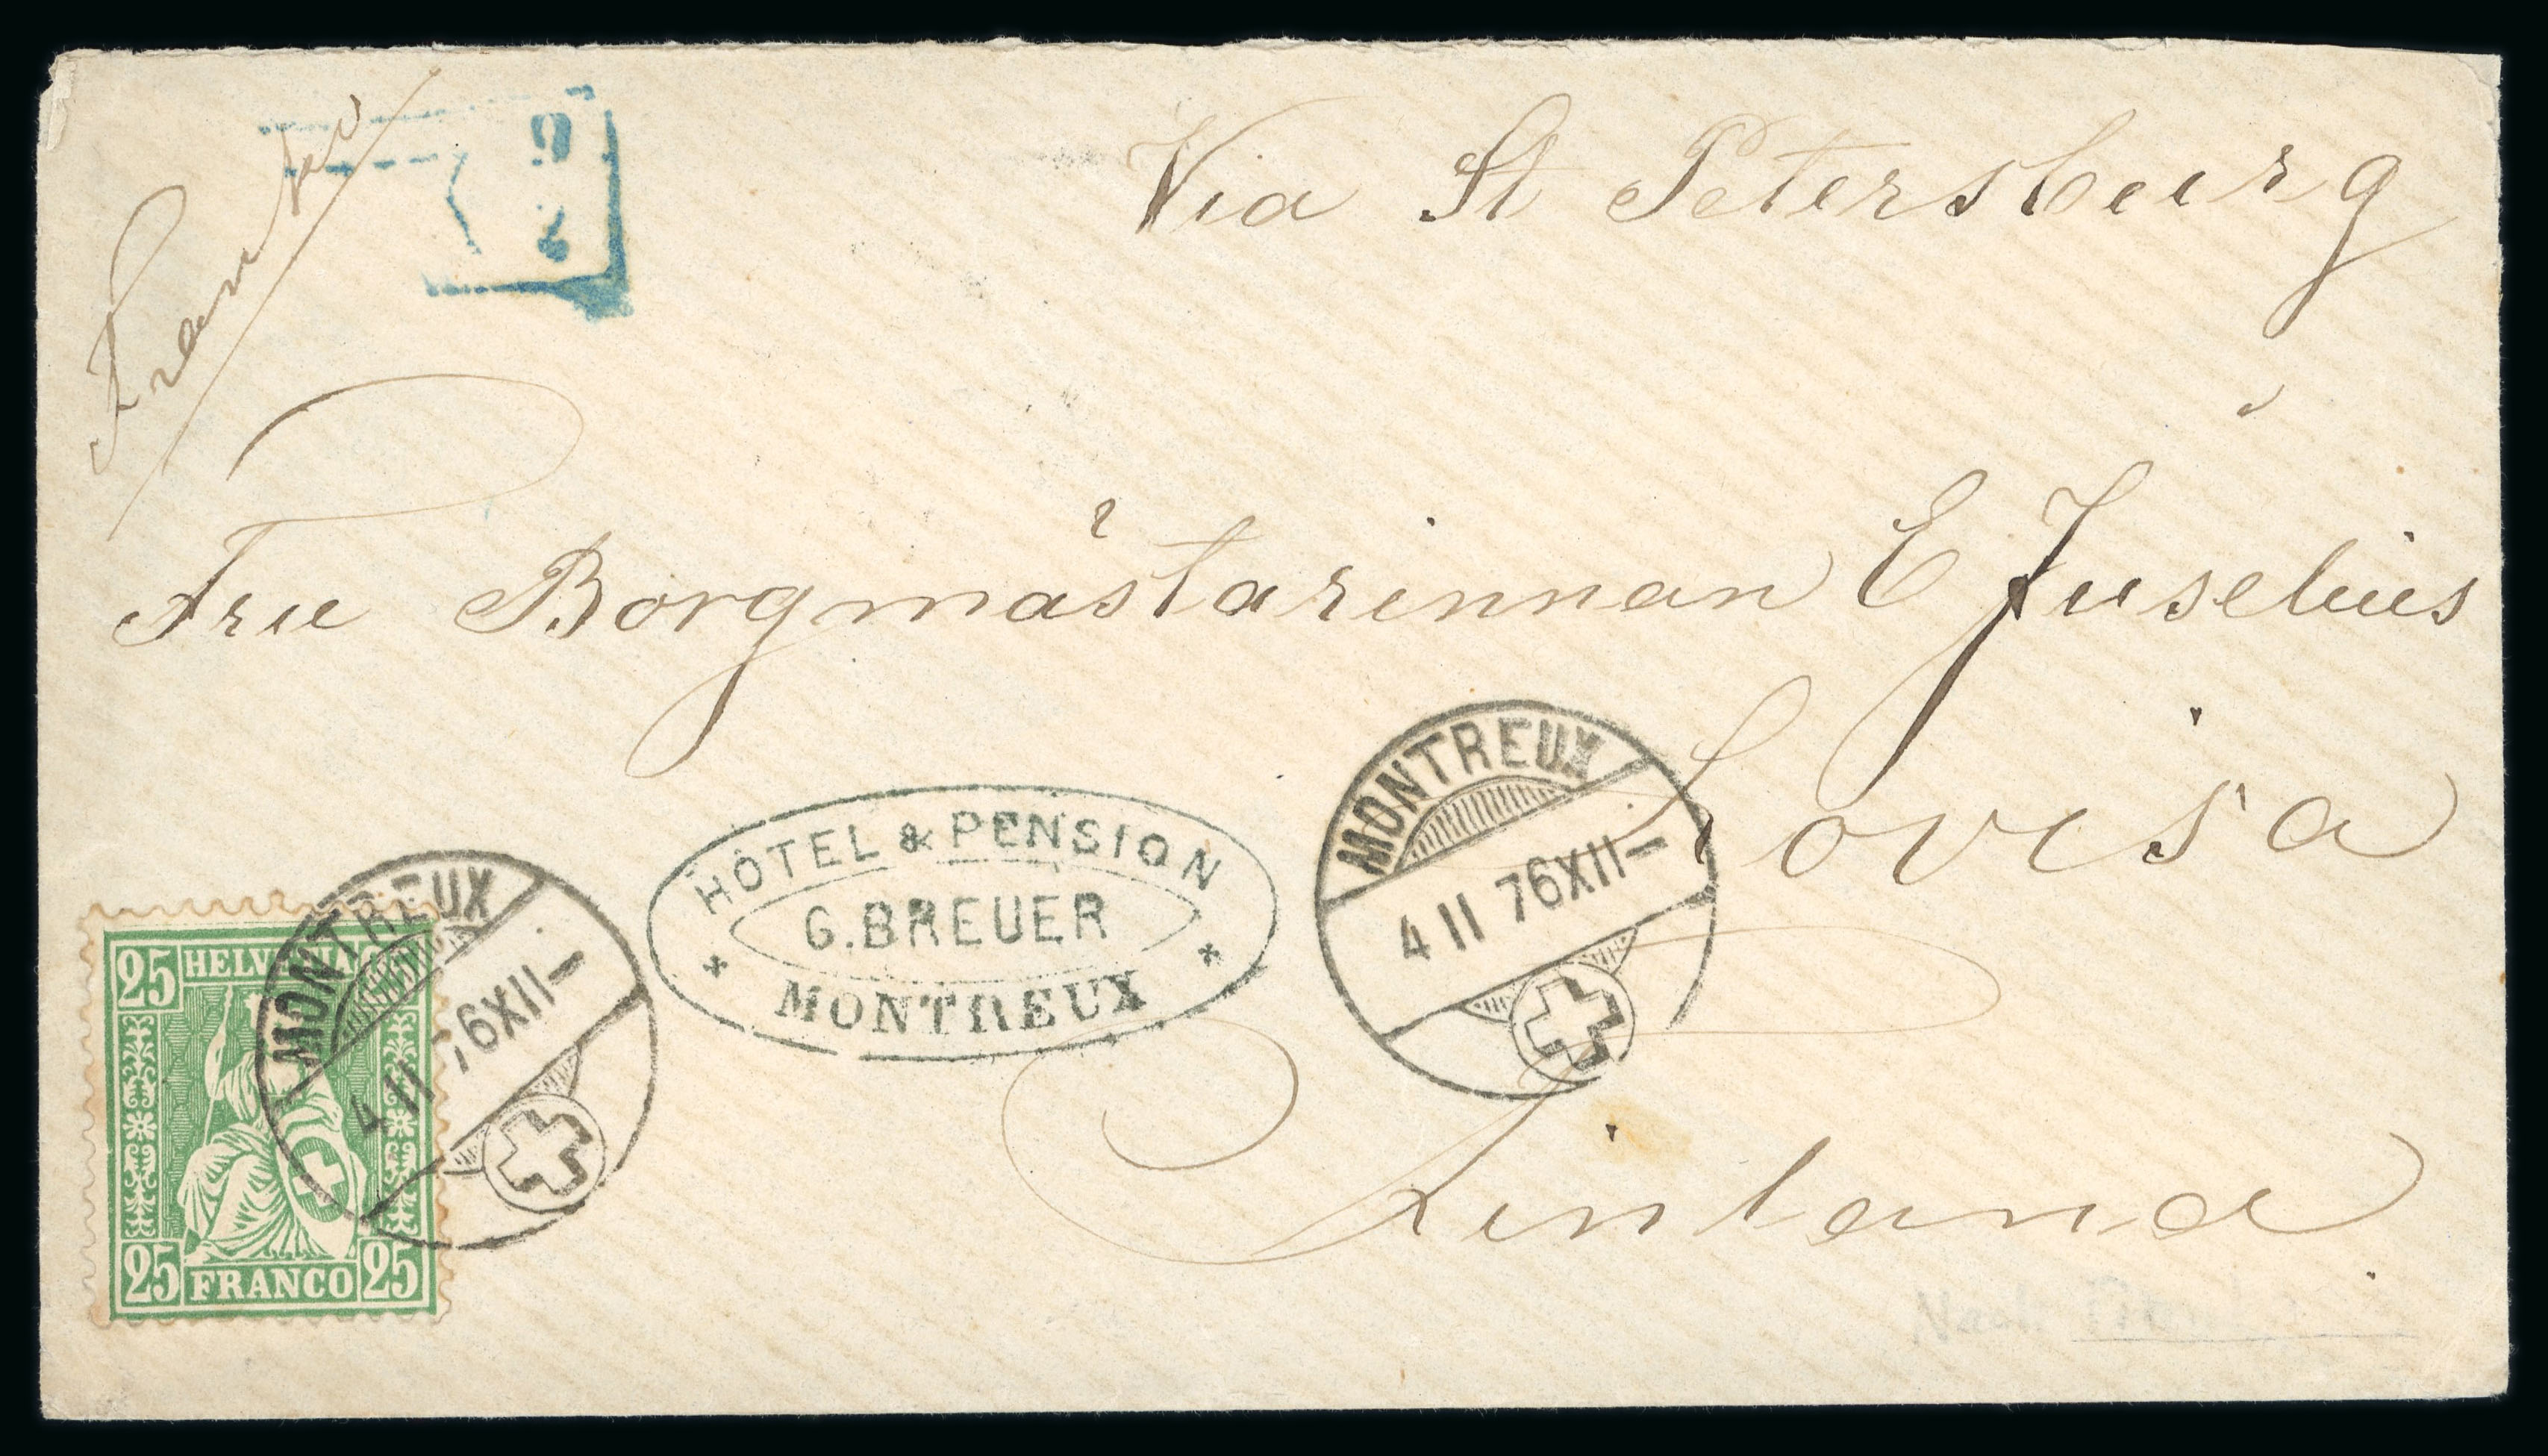 Franco
Via St Petersburg
Fru Borgmästarinnan E Juselius
Lovisa
Finland
HÔTEL & PENSION
G. BREUER
MONTREUX
MONTREUX
4 II 76 XII–
MONTREUX
4 II 76 XII–
25 HELVETIA
25 FRANCO 25
Nach